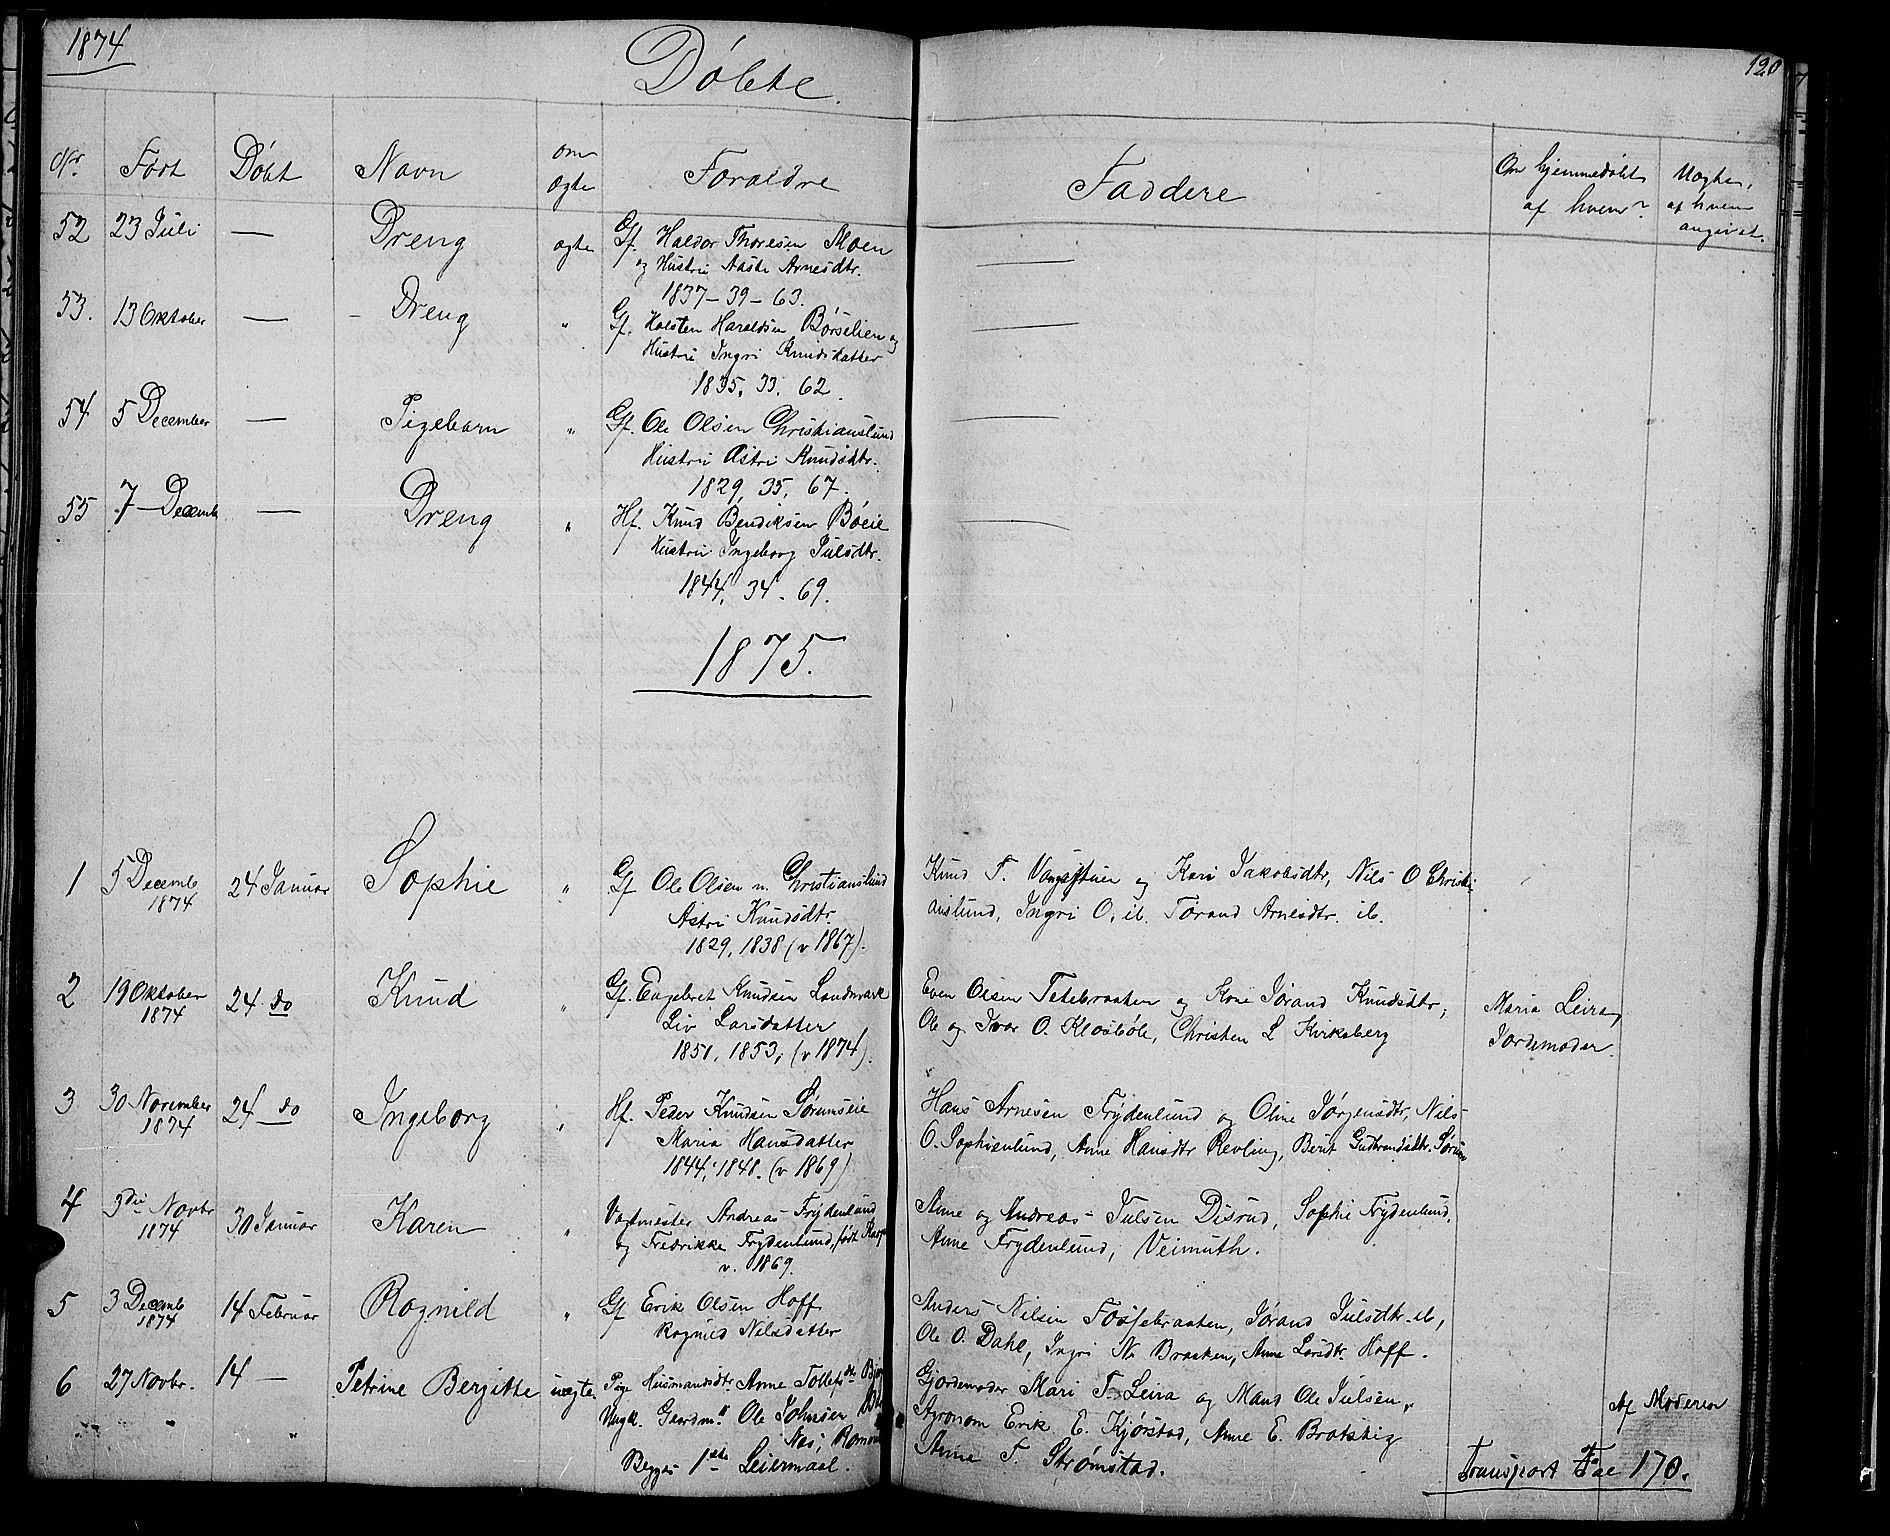 1874
Døbte.
120
Nr. Født Døbt Navn om ægte Forældre Faddere Om hjemmedøbt af hvem? Uægte, af hvem angivet.
52 23 Juli — Dreng ægte Gf. Haldor Thoresen Moen —
og Hustru Aaste Arnesdtr.
1837-39-63.
53. 13 Oktober — Dreng " Gf. Halsten Haraldsen Børselien og —
Hustru Ingri Knudsdatter
1835, 33. 62.
54 5 December — Pigebarn " Gf. Ole Olsen Christianslund —
Hustru Astri Knudsdtr.
1829, 35, 67.
55 7 Decemb — Dreng " Hf. Knud Bendiksen Bøeie —
Hustru Ingeborg Julsdtr.
1844, 34. 69.
1875.
1 5 Decemb 1874 24 Januar Sophie " Gf Ole Olsen n. Christianslund
Astri Knudsdtr.
1829, 1838 (v 1867).
Knud T. og Kari Jakobsdtr, Nils O Christi-
anslund, Ingri O. ib. Jørand Arnesdtr. ib.
2 19 Oktober 1874 24 do Knud " Gf. Engebret Knudsen Landmark
Liv Larsdatter
1851, 1853, (v 1874).
Even Olsen Tetebraaten og Kone Jørand Knudsdtr,
Ole og Ivar O. Klosbøle, Christen L Kvikaberg
Maria Leira,
Jordemoder.
3 30 November 1874 24 do Ingeborg " Hf. Peder Knudsen Sørumseie
Maria Hansdatter
1844, 1848. (v 1869)
Hans Arnesen Frydenlund og Oline Jørgensdtr, Nils
O. Sophienlund, Anne Hansdtr Revling, Berit Gudbrandsdtr. Sørum
4 3die Novbr 1874 30 Januar Karen " Vagtmester Andreas Frydenlund
og Fredrikke Frydenlund, født
v. 1869.
Anne og Andreas Julsen Disrud, Sophie Frydenlund,
Anne Frydenlund, Veimuth.
5 3 Decemb 1874 14 Februar Ragnild " Gf Erik Olsen Hoff
Ragnild Nilsdatter
Anders Nilsen Fossebraaten, Jørand Julsdtr. ib,
Ole O. Dahl, Ingri N. Braaken, Anne Larsdtr. Hoff.
6 27 Novbr. 14 — Petrine Bergitte uægte. Pige Husmandsdtr. Anne Tollefsdtr
Ungk. Gaardm. Ole Johnsen
Næs,
Begges 1ste Leiermaal.
Gjordemoder Mari T. Leira og Mand Ole Julsen,
Agronom Erik E. Kjørstad, Anne E. Bratskig
Anne T. Strømstad.
Af Moderen
Transport Fol 170.